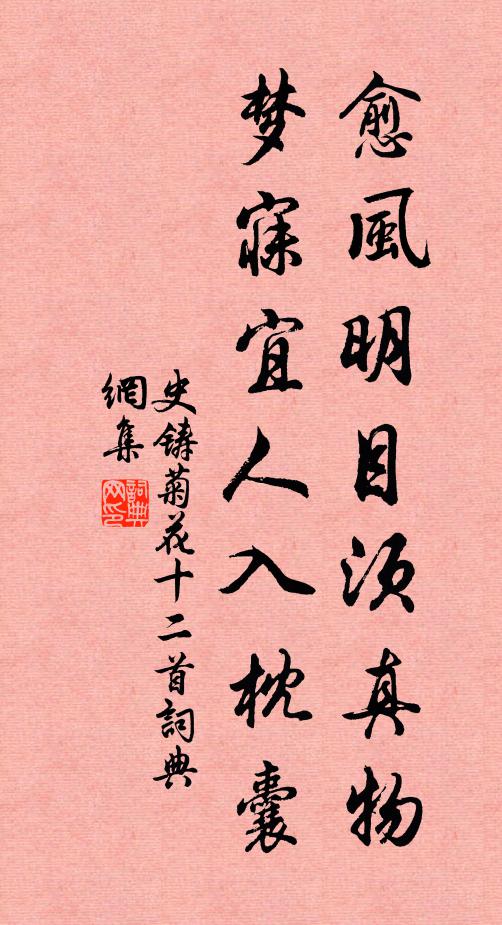 愈風明目須真物
梦寐宜人入枕囊
史鑄菊花十二首詞典
網集
詞典
网印